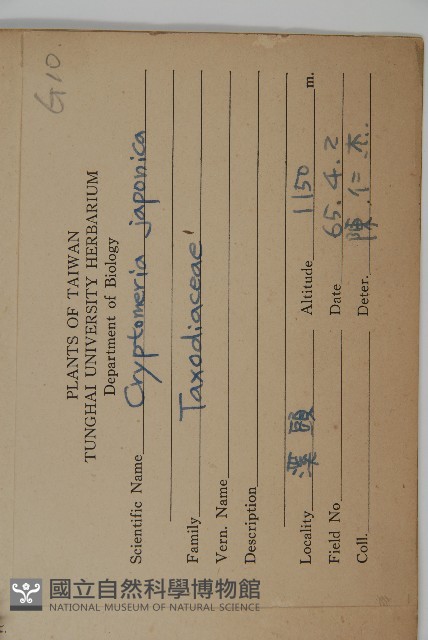 G10.
PLANTS OF TAIWAN
TUNGHAI UNIVERSITY HERBARIUM
Department of Biology
Scientific Name Cryptomeria japonica
Family Taxodiaceae
Vern. Name
Description
Locality 溪頭 Altitude 1150 m.
Field No Date 65.4.2
Coll. Deter. 陳仁杰.
國立自然科學博物館
NATIONAL MUSEUM OF NATURAL SCIENCE